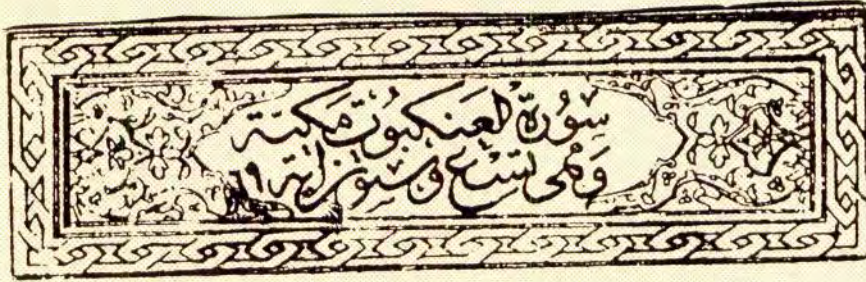 سُورَةُ الْعَنكَبُوتِ مَكِيَّة
وَهِيَ تِسْعٌ وَسِتُّونَ آيَة